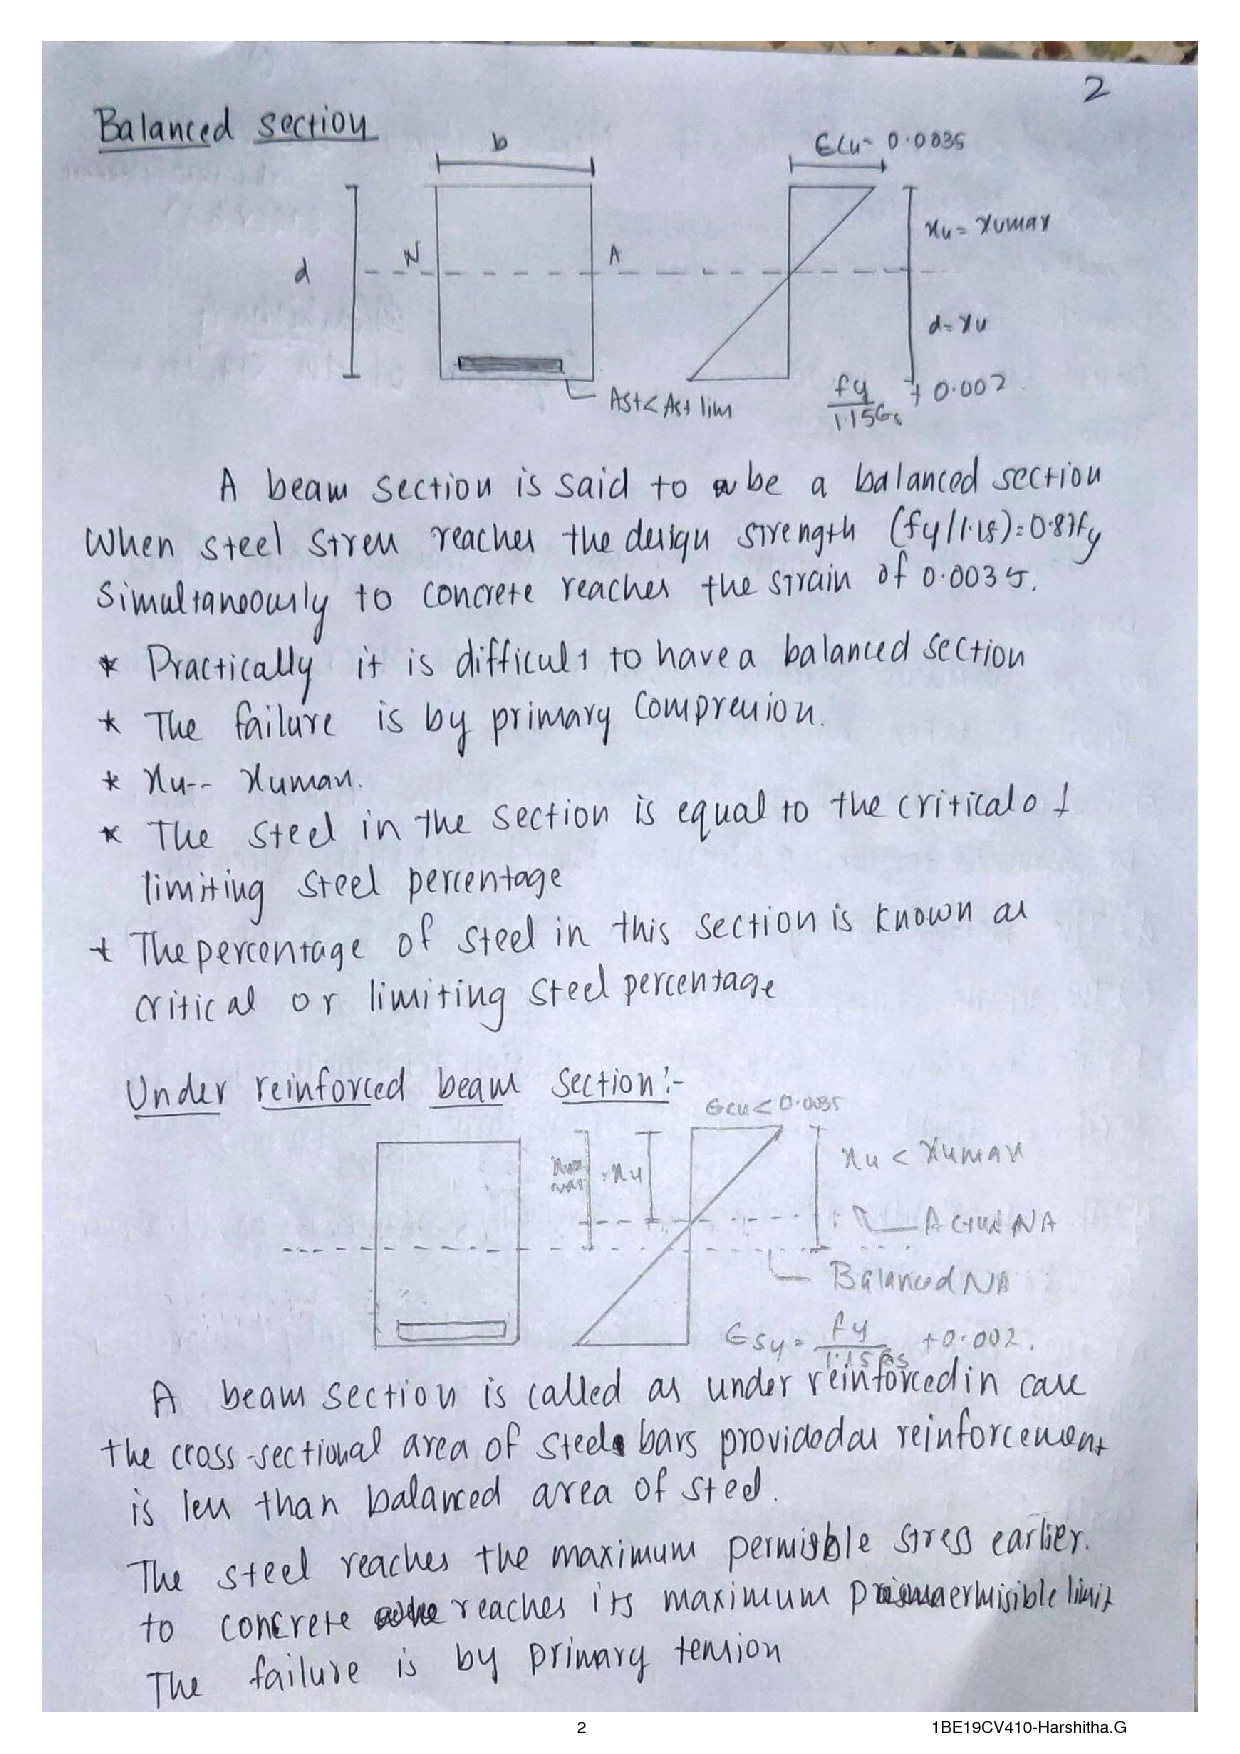 2
Balanced section
b
ϵcu= 0.0035
xu= xumax
N
A
d
d-xu
Ast<Ast lim
fy/1.15Es + 0.002
A beam section is said to be a balanced section
When steel stress reaches the design strength (fy/1.15)=0.87fy
Simultaneously to concrete reaches the strain of 0.0035.
* Practically it is difficult to have a balanced section
* The failure is by primary compression.
* xu-- xumax.
* The steel in the section is equal to the critical of
limiting steel percentage
* The percentage of steel in this section is known as
critical or limiting steel percentage
Under reinforced beam section:-
ϵcu< 0.0035
xu
xu < xumax
Actual NA
Balanced NA
ϵsy= fy/1.15Es +0.002.
A beam section is called as under reinforced in case
the cross-sectional area of steel bars provided as reinforcement
is less than balanced area of steel.
The steel reaches the maximum permisble stress earlier.
to concrete reaches its maximum permisible limit
The failure is by primary tension
2
1BE19CV410-Harshitha.G